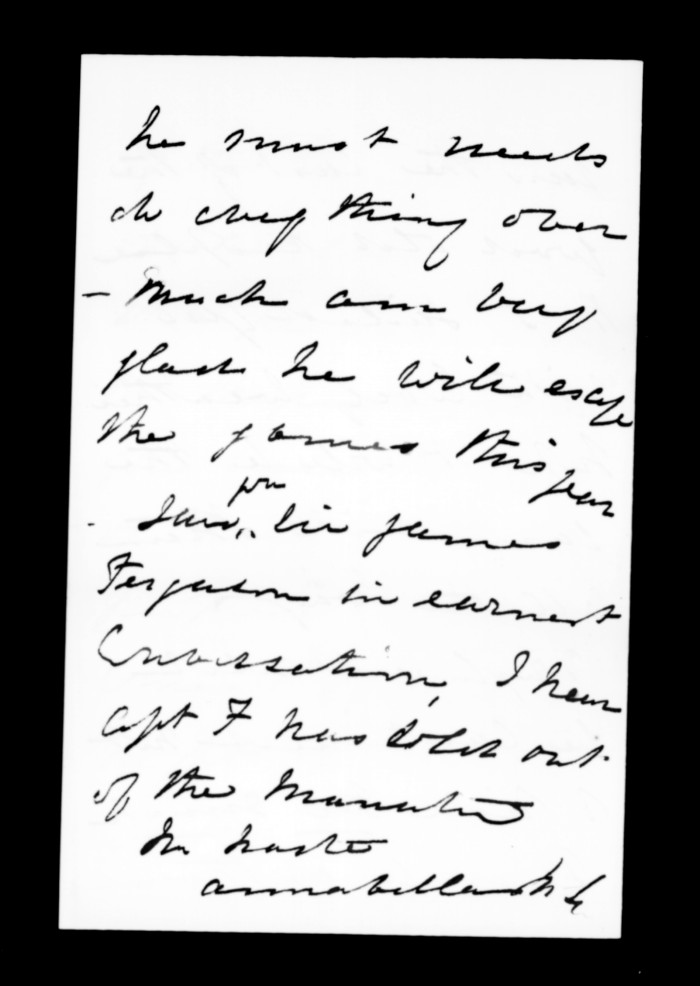 he must needs
do everything over
- much am very
glad he will escape
the games this year
- Saw you Sir James
Ferguson in earnest
Conversation, I hear
Capt F has sold out
of the
In haste
Annabella McL